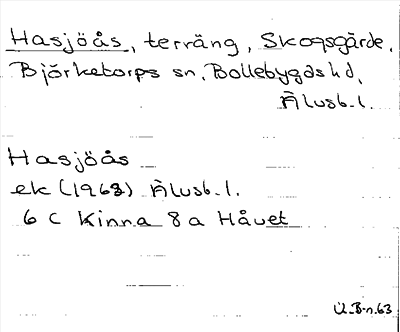 Hasjöås, terräng, Skogsgärde,
Björketorps sn, Bollebygds hd,
Älvsb. l.
Hasjöås
ek (1968) Älvsb. l.
6 C Kinna 8 a Håvet
Ü. B-n. 63